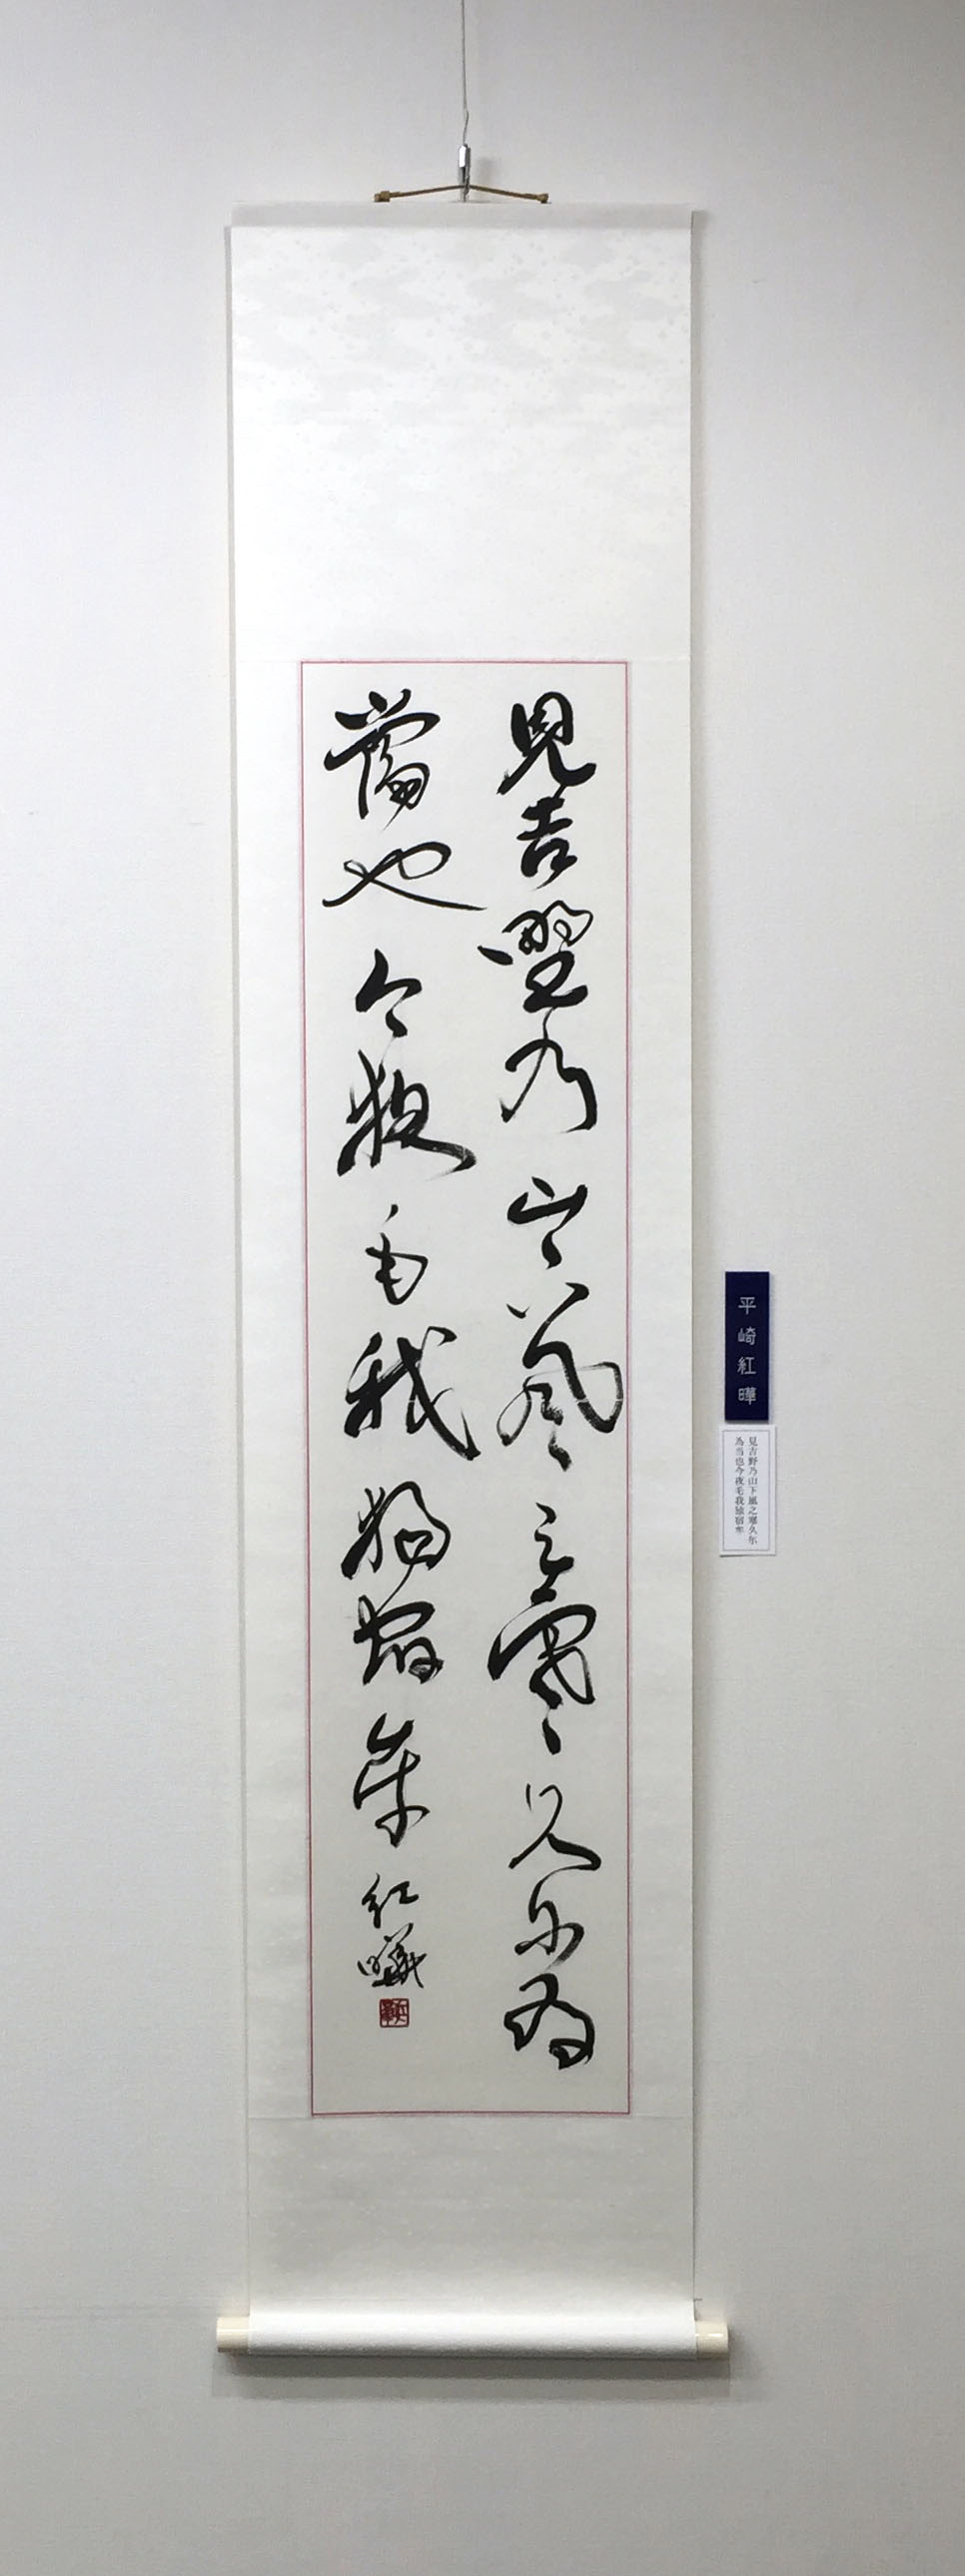 見吉野乃山下風之寒久尓為
當也今夜毛我獨宿牟
紅曄
平崎紅曄
見吉野乃山下風之寒久尓
為当也今夜毛我独宿牟